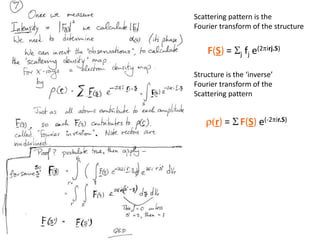 7
Once we measure
Intensity = |F|² we calculate |F|
We need to determine α(s) (its phase)
We can invert the "observations", to calculate
the "scattering density" map.
For x-rays = electron density map
by ρ(r) = Σ F(s) e^-2πi r.s
Just as all atoms contribute to each amplitude
F(s), so each F(s) contributes to ρ(r).
called "Fourier inversion". Note vectors are
underlined.
Proof? postulate true, then apply -
so
for some s'
F(s') =
This = 0 unless
s' = s, then 1
F(s') = F(s')
QED
Scattering pattern is the
Fourier transform of the structure
F(S) = Σj fj e(2πirj.S)
Structure is the 'inverse'
Fourier transform of the
Scattering pattern
ρ(r) = Σ F(S) e(-2πir.S)